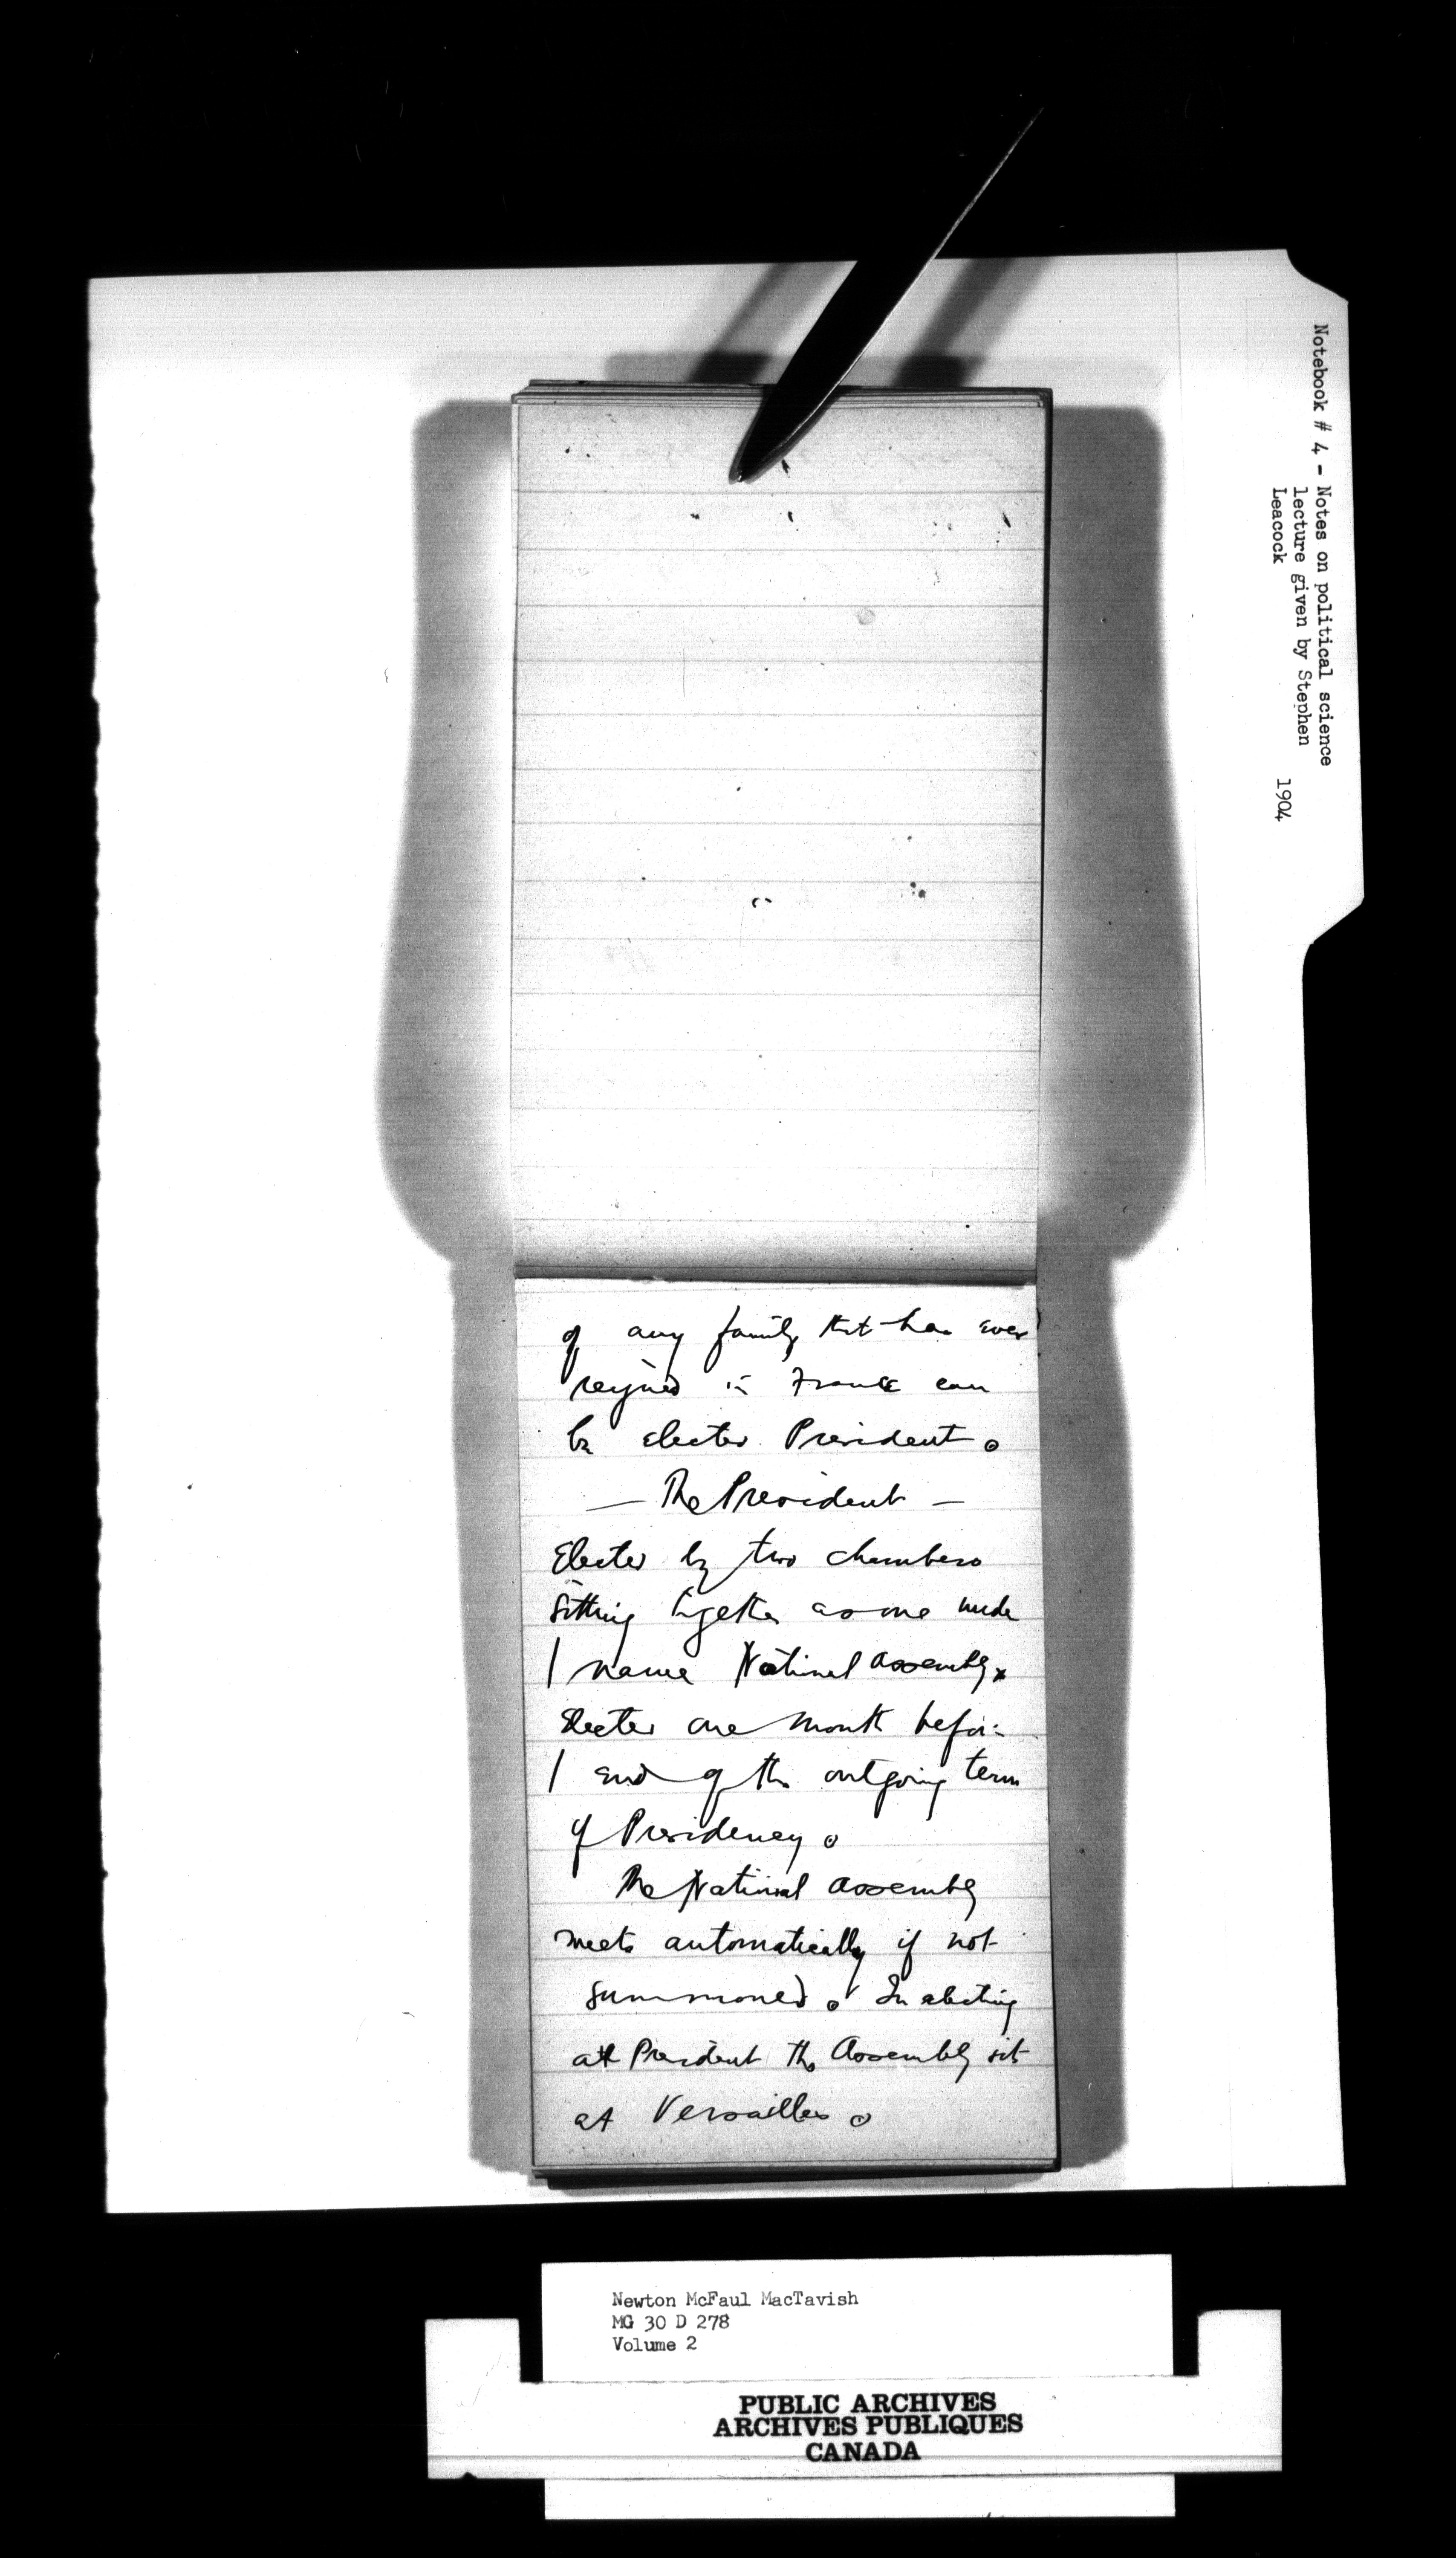 Notebook # 4 - Notes on political science
lecture given by Stephen
Leacock 1904
of any family that has ever
reigned in France can
be elected President.
— The President —
Elected by two chambers
sitting together as one under
/ name National Assembly x
Elected one month before
/ end of the outgoing term
of Presidency.
The National Assembly
meets automatically if not
summoned. In electing
President the Assembly sits
at Versailles.
Newton McFaul MacTavish
MG 30 D 278
Volume 2
PUBLIC ARCHIVES
ARCHIVES PUBLIQUES
CANADA